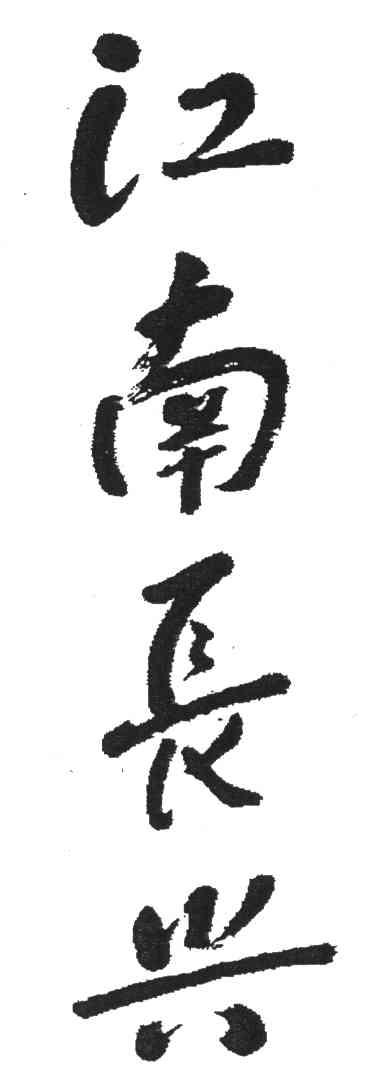 江南長兴